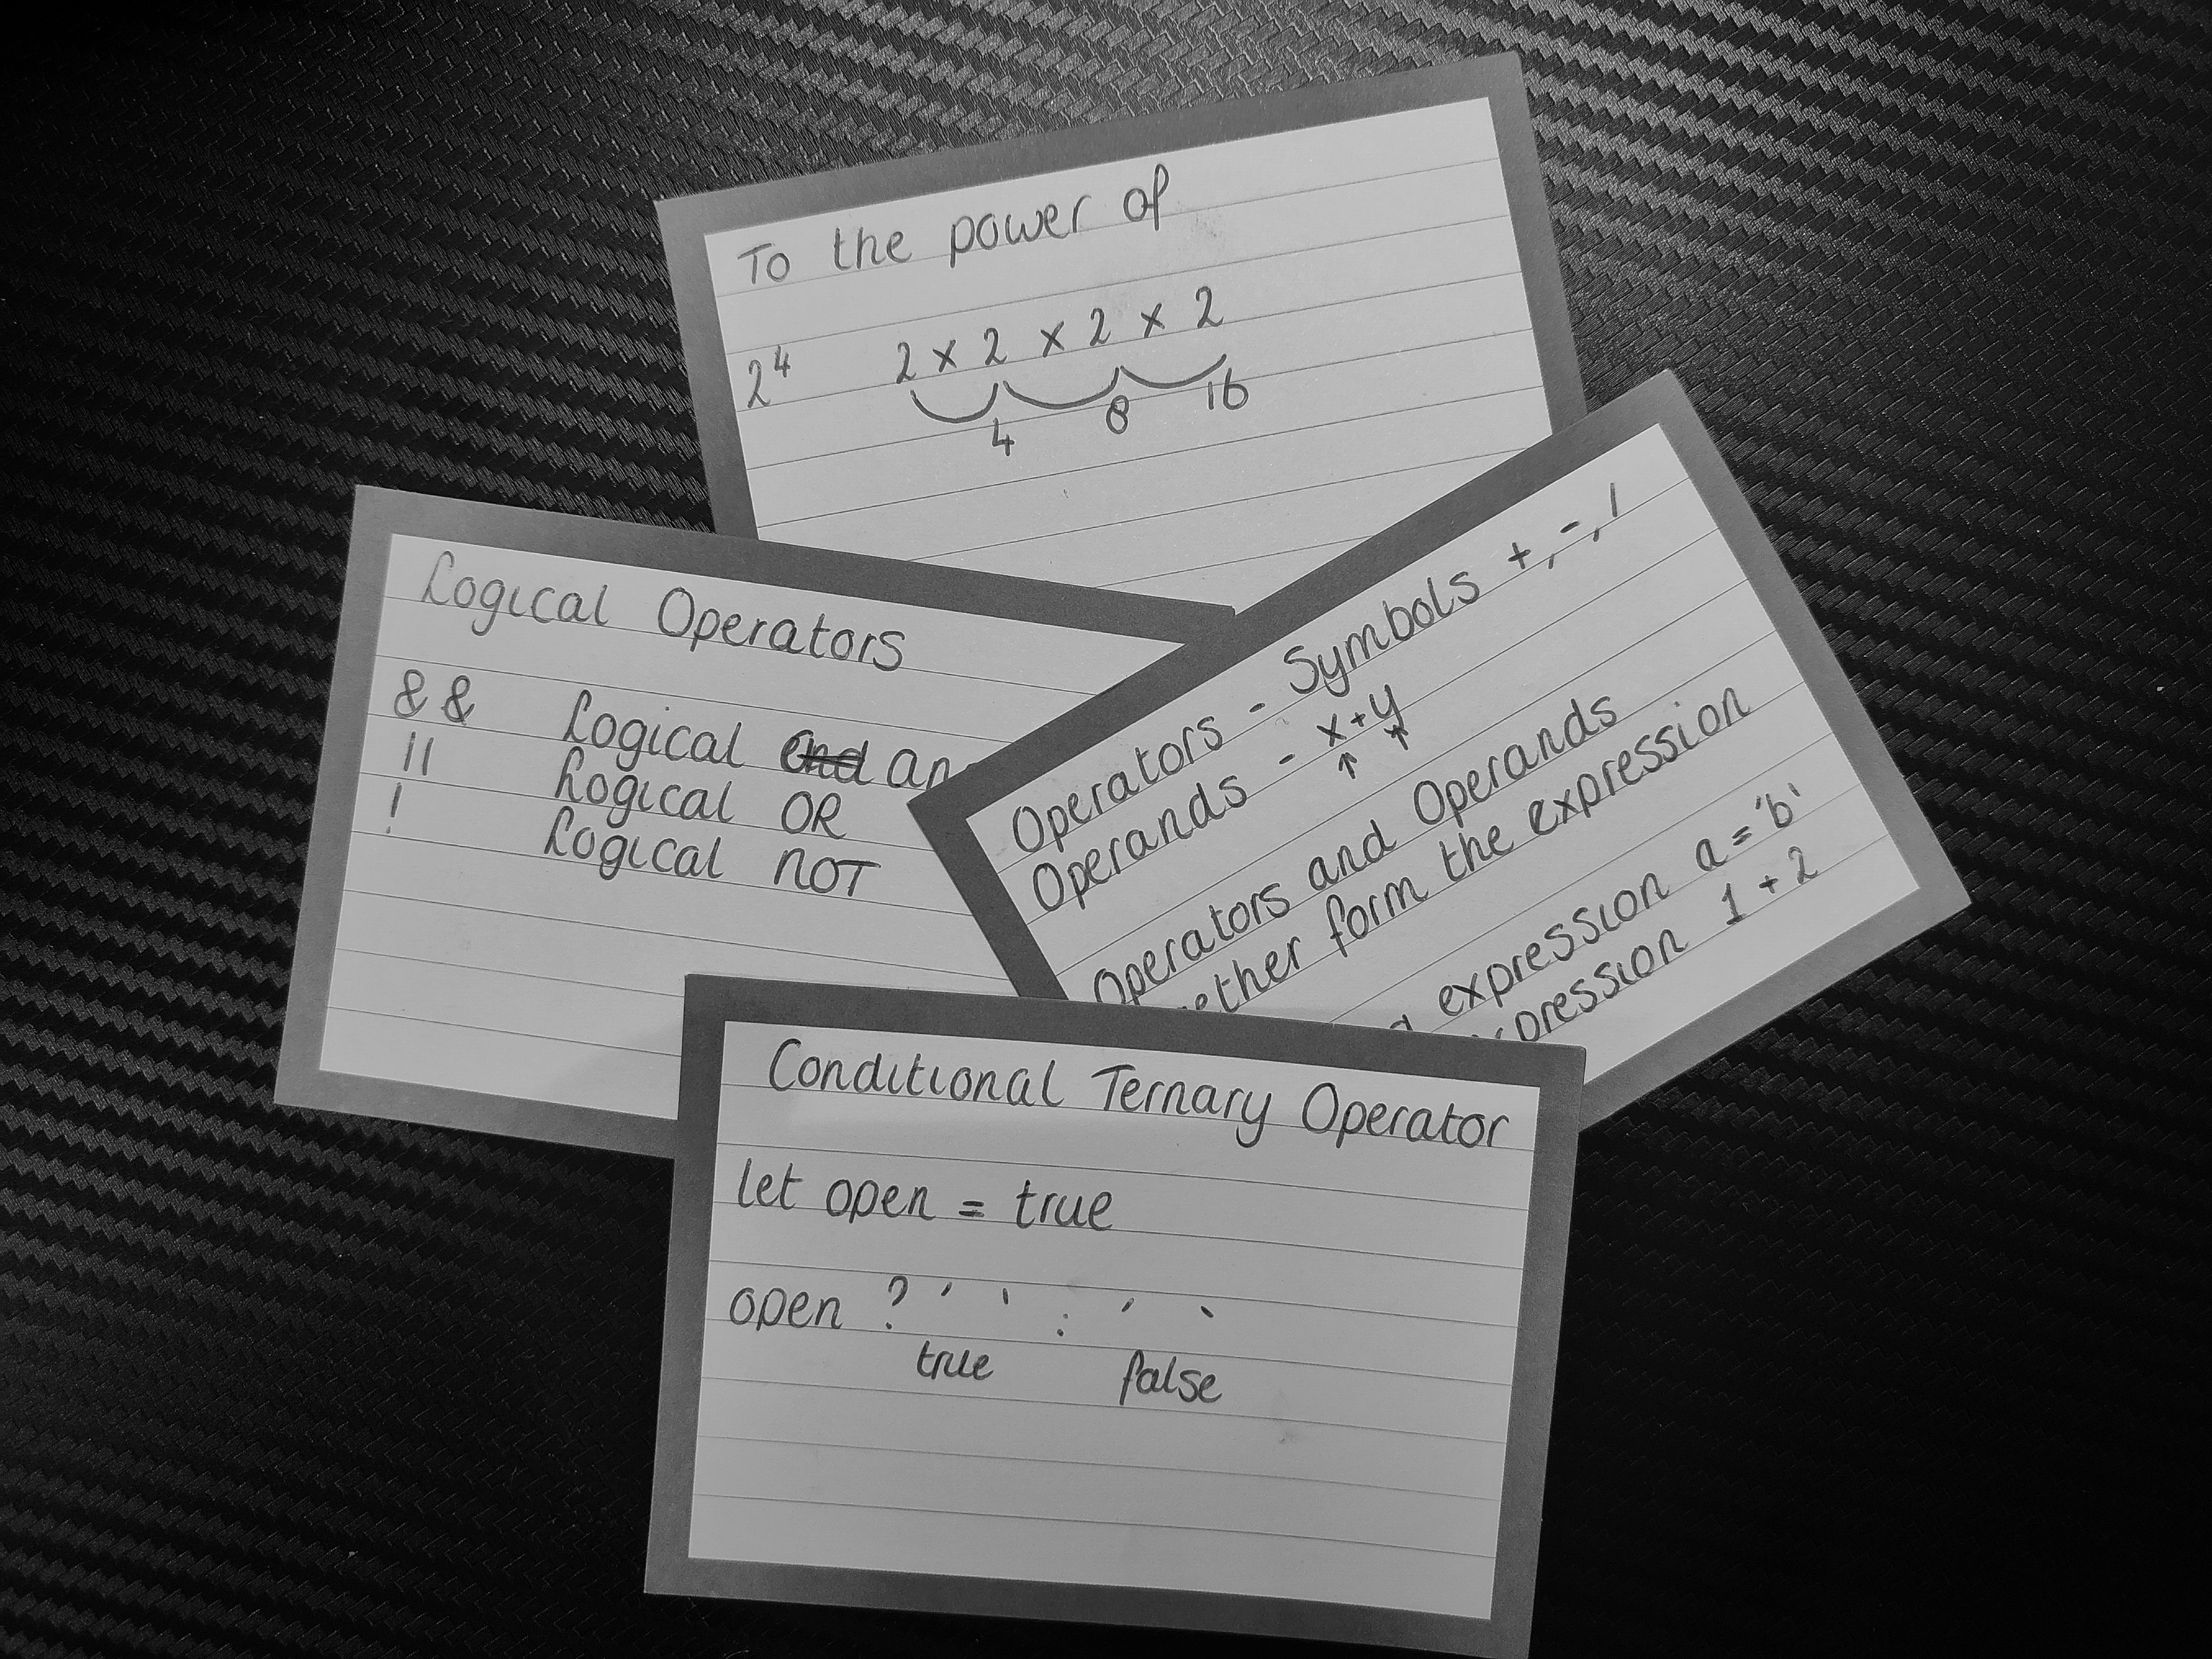 To the power of
2⁴ 2 x 2 x 2 x 2
4 8 16
Logical Operators
&& Logical end
|| Logical OR
! Logical NOT
Operators - Symbols +, -, /
Operands - x+y
↑ ↑
Operators and Operands
form the expression
expression a = 'b'
1 + 2
Conditional Ternary Operator
let open = true
open ? ' ' : ' '
true false